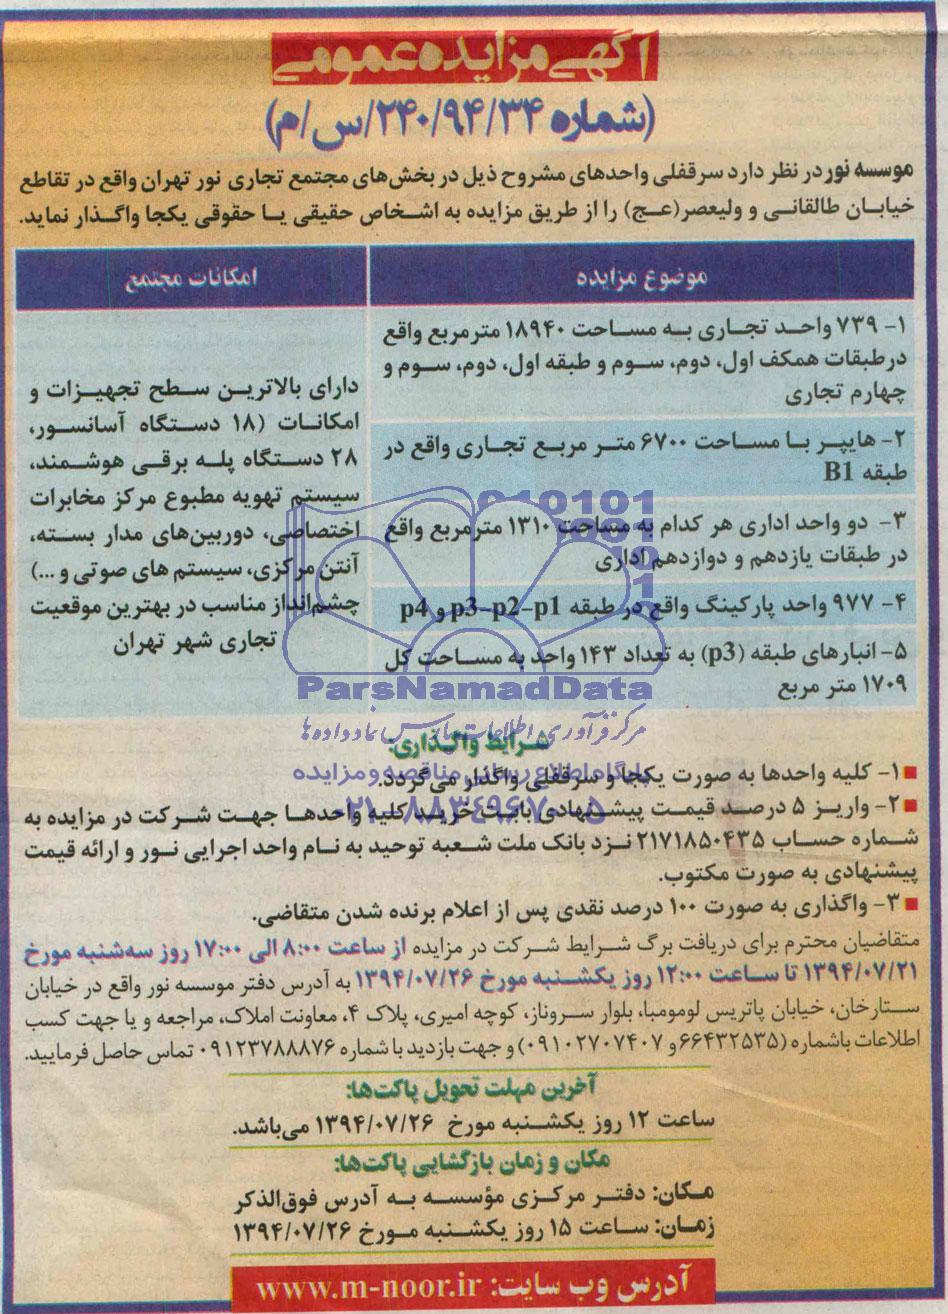 آگهی مزایده عمومی
(شماره ۲۴۰/۹۴/۳۴/س/م)
موسسه نور در نظر دارد سرقفلی واحدهای مشروح ذیل در بخش‌های مجتمع تجاری نور تهران واقع در تقاطع
خیابان طالقانی و ولیعصر(عج) را از طریق مزایده به اشخاص حقیقی یا حقوقی یکجا واگذار نماید.
موضوع مزایده
۱- ۷۳۹ واحد تجاری به مساحت ۱۸۹۴۰ مترمربع واقع
درطبقات همکف اول، دوم، سوم و طبقه اول، دوم، سوم و
چهارم تجاری
۲- هایپر با مساحت ۶۷۰۰ متر مربع تجاری واقع در
طبقه B1
۳- دو واحد اداری هر کدام به مساحت ۱۳۱۰ مترمربع واقع
در طبقات یازدهم و دوازدهم اداری
۴- ۹۷۷ واحد پارکینگ واقع در طبقه p3-p2-p1 و p4
۵- انبارهای طبقه (p3) به تعداد ۱۴۳ واحد به مساحت کل
۱۷۰۹ متر مربع
امکانات مجتمع
دارای بالاترین سطح تجهیزات و
امکانات (۱۸ دستگاه آسانسور،
۲۸ دستگاه پله برقی هوشمند،
سیستم تهویه مطبوع مرکز مخابرات
اختصاصی، دوربین‌های مدار بسته،
آنتن مرکزی، سیستم های صوتی و ...)
چشم‌انداز مناسب در بهترین موقعیت
تجاری شهر تهران
ParsNamadData
مرکز فرآوری اطلاعات پارس نماد داده ها
پایگاه اطلاع رسانی مناقصه و مزایده
۰۲۱-۸۸۳۴۹۶۷۰-۵
شرایط واگذاری:
۱- کلیه واحدها به صورت یکجا و سرقفلی واگذار می‌گردد.
۲- واریز ۵ درصد قیمت پیشنهادی بابت خرید کلیه واحدها جهت شرکت در مزایده به
شماره حساب ۲۱۷۱۸۵۰۴۳۵ نزد بانک ملت شعبه توحید به نام واحد اجرایی نور و ارائه قیمت
پیشنهادی به صورت مکتوب.
۳- واگذاری به صورت ۱۰۰ درصد نقدی پس از اعلام برنده شدن متقاضی.
متقاضیان محترم برای دریافت برگ شرایط شرکت در مزایده از ساعت ۸:۰۰ الی ۱۷:۰۰ روز سه‌شنبه مورخ
۱۳۹۴/۰۷/۲۱ تا ساعت ۱۲:۰۰ روز یکشنبه مورخ ۱۳۹۴/۰۷/۲۶ به آدرس دفتر موسسه نور واقع در خیابان
ستارخان، خیابان پاتریس لومومبا، بلوار سروناز، کوچه امیری، پلاک ۴، معاونت املاک، مراجعه و یا جهت کسب
اطلاعات باشماره (۶۶۴۳۲۵۳۵ و ۰۹۱۰۲۷۰۷۴۰۷) و جهت بازدید با شماره ۰۹۱۲۳۷۸۸۸۷۶ تماس حاصل فرمایید.
آخرین مهلت تحویل پاکت‌ها:
ساعت ۱۲ روز یکشنبه مورخ ۱۳۹۴/۰۷/۲۶ می‌باشد.
مکان و زمان بازگشایی پاکت‌ها:
مکان: دفتر مرکزی مؤسسه به آدرس فوق‌الذکر
زمان: ساعت ۱۵ روز یکشنبه مورخ ۱۳۹۴/۰۷/۲۶
آدرس وب سایت: www.m-noor.ir